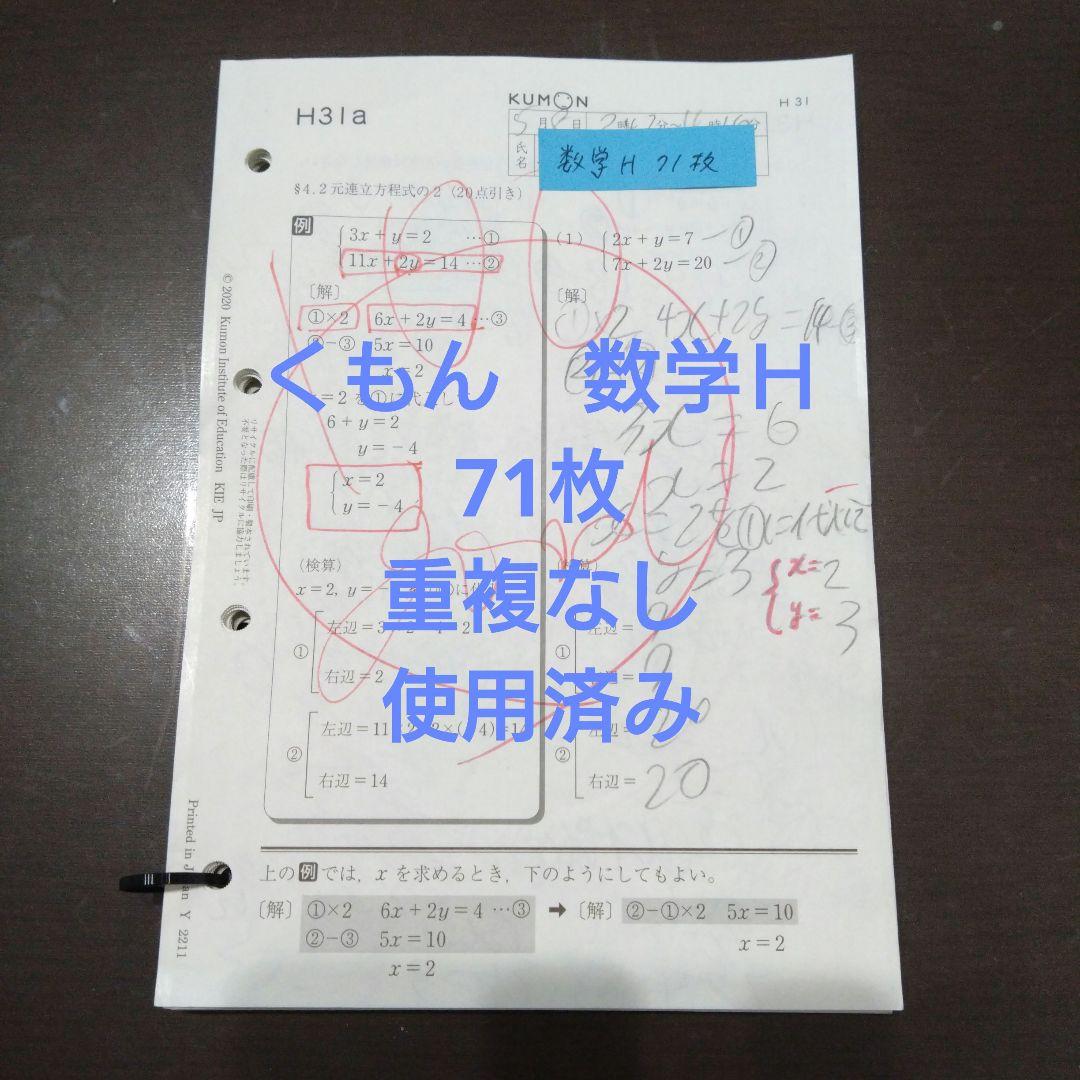 KUMON
H31a
H 31
5月8日
氏名
数学H 71枚
§4. 2元連立方程式の2 (20点引き)
例
3x+y=2 …①
11x+2y=14 …②
〔解〕
①×2 6x+2y=4 …③
②-③ 5x=10
x=2
x=2を①に代入して
6+y=2
y=-4
x=2
y=-4
(検算)
x=2, y=-
に代
①
左辺=3
右辺=2
②
左辺=11
右辺=14
(1)
2x+y=7 ―①
7x+2y=20 ―②
〔解〕
①×2 4x+2y=14 ③
3x=6
x=2
x=2を①に代入
y=3
x=2
y=3
①
左辺=
右辺=
②
左辺=
右辺=20
くもん 数学H
71枚
重複なし
使用済み
上の例では, xを求めるとき, 下のようにしてもよい。
〔解〕 ①×2 6x+2y=4 …③
②-③ 5x=10
x=2
➡ 〔解〕 ②-①×2 5x=10
x=2
© 2020 Kumon Institute of Education KIE JP
Printed in Japan Y 2211